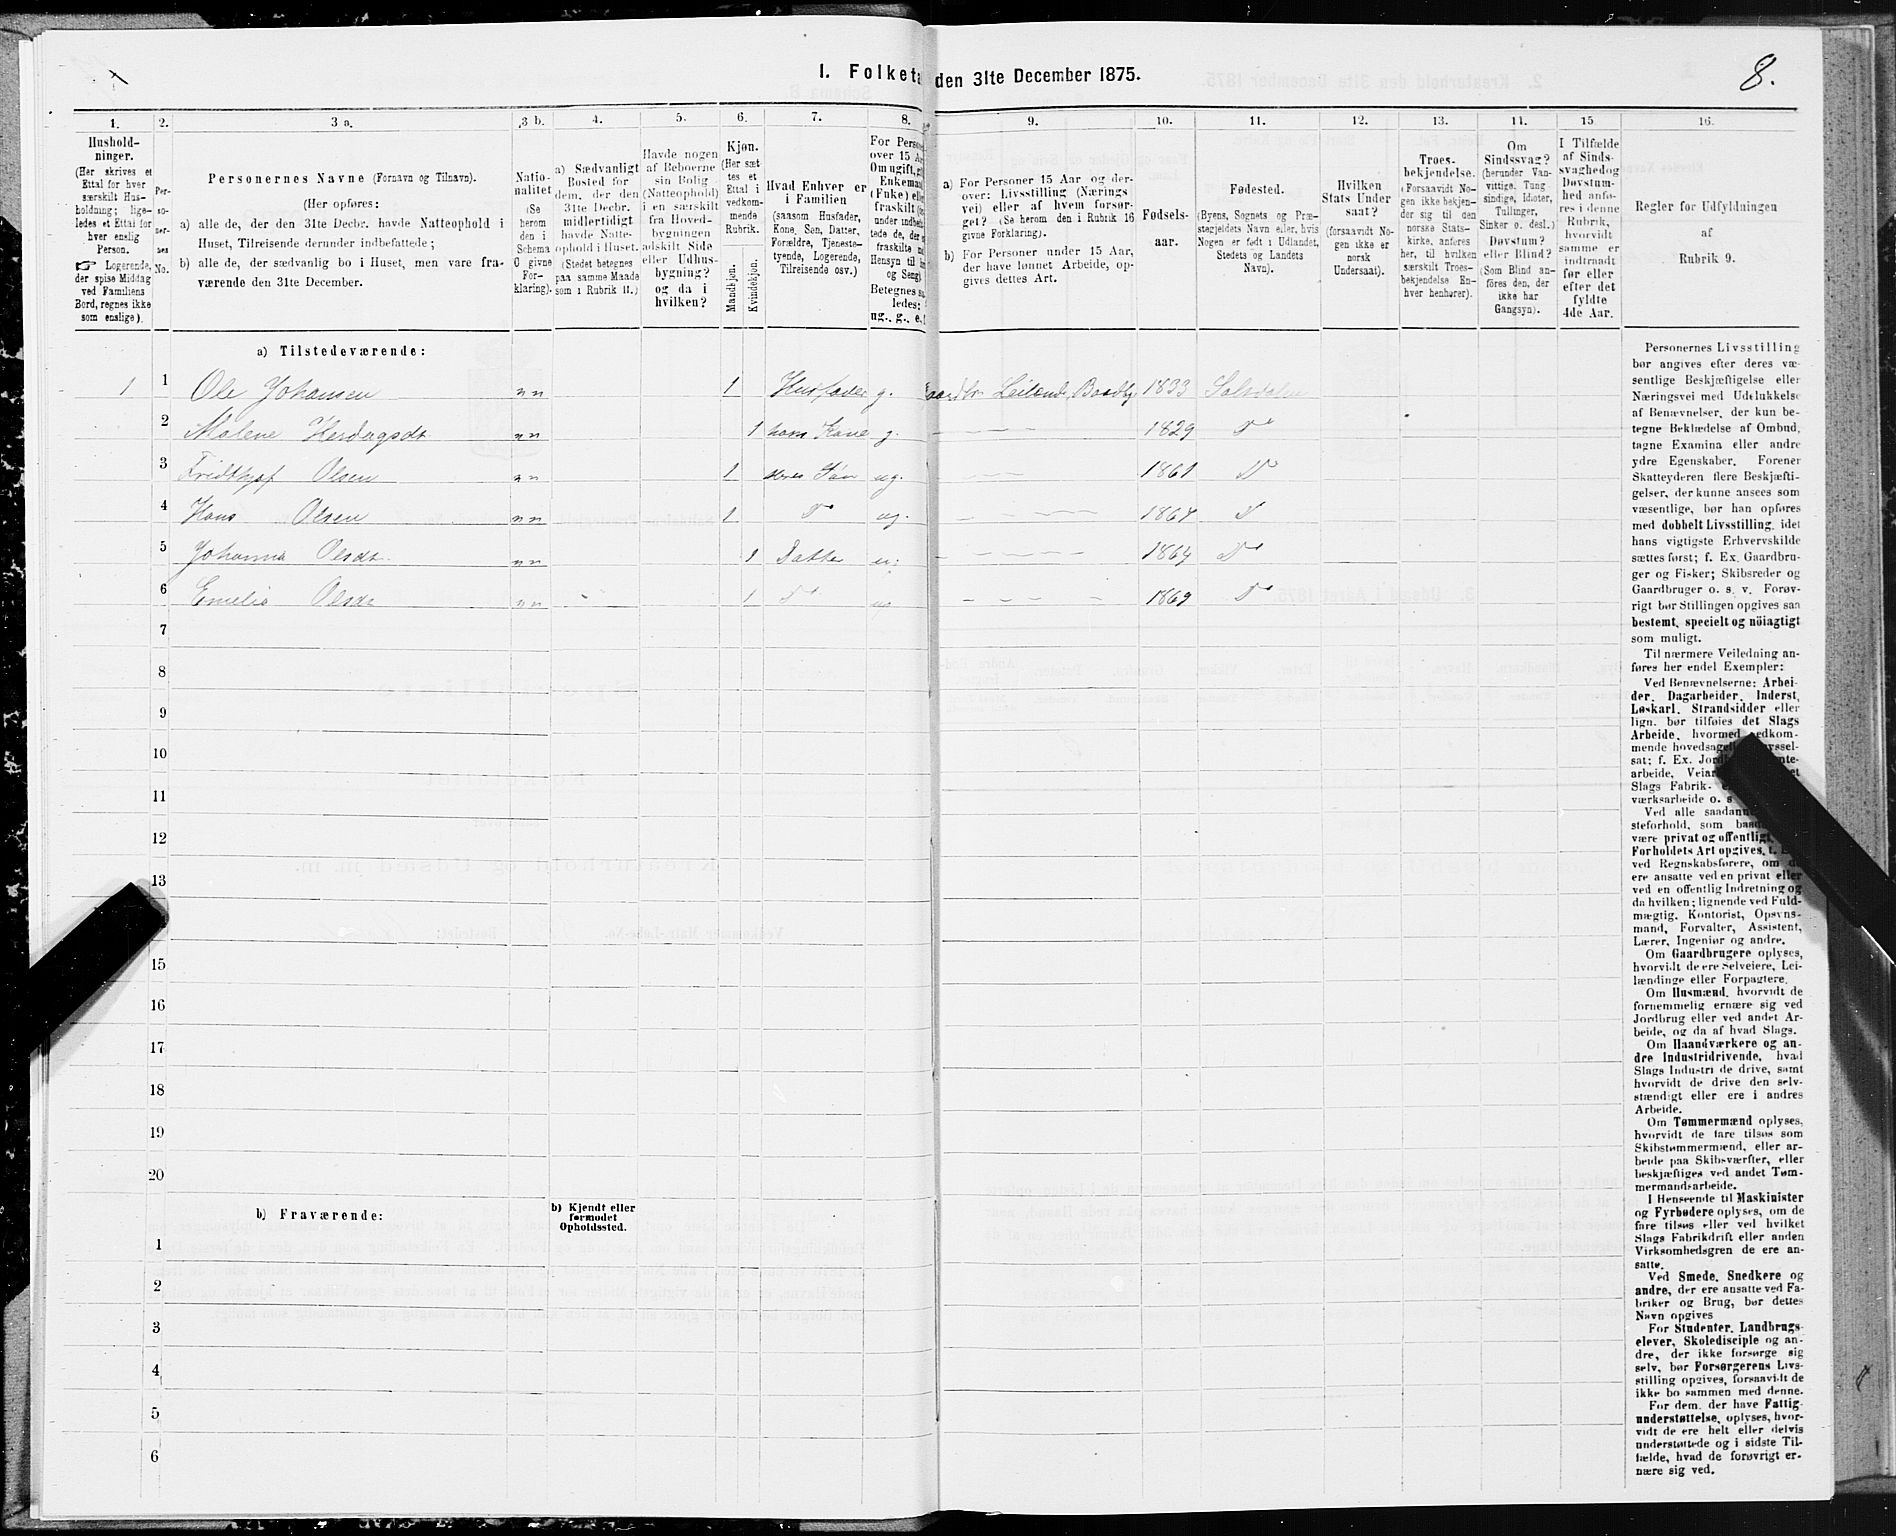 I. Folketa den 31te December 1875.
8.
1.
Hushold-
ninger.
(Her skrives et
Ettal for hver
særskilt Hus-
holdning; lige-
ledes et Ettal for
hver enslig
Person.
☞ Logerende,
der spise Middag
ved Familiens
Bord, regnes ikke
som enslige).
2.
Per-
so-
ner-
nes
No.
3 a.
Personernes Navne (Fornavn og Tilnavn).
(Her opføres:
a) alle de, der den 31te Decbr. havde Natteophold i
Huset, Tilreisende derunder indbefattede;
b) alle de, der sædvanlig bo i Huset, men vare fra-
værende den 31te December.
3 b.
Natio-
nalitet
(Se
herom
den i
Schema
C givne
For-
klaring).
4.
a) Sædvanligt
Bosted for
dem, der den
31te Decbr.
midlertidigt
havde Natte-
ophold i Huset.
(Stedet betegnes
paa samme Maade
som i Rubrik 11.)
5.
Havde nogen
af Beboerne
sin Bolig
(Natteophold)
i en særskilt
fra Hoved-
bygningen
adskilt Side
eller Udhus-
bygning?
og da i
hvilken?
6.
Kjøn.
(Her sæt-
tes et
Ettal i
vedkom-
mende
Rubrik.
Mandkjøn.
Kvindekjøn.
7.
Hvad Enhver er
i Familien
(saasom Husfader,
Kone, Søn, Datter,
Forældre, Tjeneste-
tyende, Logerende,
Tilreisende osv.)
8.
For Perso
over 15 A
Om ugift, g
Enkeman
(Enke) elle
fraskilt
under indbe
tede de, der
fraskilte
Hensyn til
og Seng)
Betegnes s
ledes:
ug., g., e.
9.
a) For Personer 15 Aar og der-
over: Livsstilling (Nærings
vei) eller af hvem forsør-
get? (Se herom den i Rubrik 16
givne Forklaring).
b) For Personer under 15 Aar,
der have lønnet Arbeide, op-
gives dettes Art.
10.
Fødsels-
aar.
11.
Fødested.
(Byens, Sognets og Præ-
stegjeldets Navn eller, hvis
Nogen er født i Udlandet,
Stedets og Landets
Navn).
12.
Hvilken
Stats Under
saat?
(forsaavidt No-
gen ikke er
norsk
Undersaat).
13.
Troes-
bekjendelse.
(Forsaavidt No-
gen ikke bekjen-
der sig til den
norske Stats-
kirke, anføres
her, til hvilken
særskilt Troes-
bekjendelse En-
hver henhører).
14.
Om
Sindssvag?
(herunder Van-
vittige, Tung
sindige, Idioter,
Tullinger,
Sinker o. desl.)
Døvstum?
eller Blind?
(Som Blind an-
føres den, der
ikke har
Gangsyn).
15
I Tilfælde
af Sinds-
svaghed og
Døvstum-
hed anfø-
res i denne
Rubrik,
hvorvidt
samme er
indtraadt
før eller
efter det
fyldte
4de Aar.
16.
Regler for Udfyldningen
af
Rubrik 9.
a) Tilstedeværende:
1 1 Ole Johansen nn 1 Husfader g. Leilend, Baadb. 1833 Salsdalen
2 Malene Herdagsdt nn 1 hans Kone g. – – – 1829 Do
3 Fridthjof Olsen nn 1 deres Søn ug. – – – 1861 Do
4 Hans Olsen nn 1 Do ug. – – – 1864 Do
5 Johanna Olsdt nn 1 Datter – – – 1864 Do
6 Emelie Olsdt nn 1 Do ug – – – 1869 Do
7
8
9
10
11
12
13
15
16
17
18
19
20
b) Fraværende:
b) Kjendt eller
formodet
Opholdssted.
1
2
3
4
5
6
Personernes Livsstilling
bør angives efter deres væ-
sentlige Beskjæftigelse eller
Næringsvei med Udelukkelse
af Benævnelser, der kun be-
tegne Beklædelse af Ombud,
tagne Examina eller andre
ydre Egenskaber. Forener
Skatteyderen flere Beskjæfti-
gelser, der kunne ansees som
væsentlige, bør han opføres
med dobbelt Livsstilling, idet
hans vigtigste Erhvervskilde
sættes først; f. Ex. Gaardbru-
ger og Fisker; Skibsreder og
Gaardbruger o. s. v. Forøv-
rigt bør Stillingen opgives saa
bestemt, specielt og nöiagtigt
som muligt.
Til nærmere Veiledning an-
føres her endel Exempler:
Ved Benævnelserne: Arbei-
der, Dagarbeider, Inderst,
Løskarl, Strandsidder eller
lign. bør tilføies det Slags
Arbeide, hvormed edkom-
mende hovedsagel ysse­l-
sat; f. Ex. Jord nte-
arbeide, Veiar et
Slags Fabrik-
værksarbeide o. s
Ved alle saadann
steforhold, som baa
være privat og offentligt,
Forholdets Art opgives, t.
ved Regnskabsførere, om de
ere ansatte ved en privat eller
ved en offentlig Indretning og
da hvilken; lignende ved Fuld-
mægtig, Kontorist, Opsyns-
mand, Forvalter, Assistent,
Lærer, Ingeniør og andre.
Om Gaardbrugere oplyses,
hvorvidt de ere Selveiere, Lei-
lændinge eller Forpagtere.
Om Husmænd, hvorvidt de
fornemmelig ernære sig ved
Jordbrug eller ved andet Ar-
beide, og da af hvad Slags.
Om Haandværkere og an-
dre Industridrivende, hvad
Slags Industri de drive, samt
hvorvidt de drive den selv-
stændigt eller ere i andres
Arbeide.
Om Tømmermænd oplyses,
hvorvidt de fare tilsøs som
Skibstømmermænd, eller ar-
beide paa Skibsværfter, eller
beskjæftiges ved andet Tøm-
mermandsarbeide.
I Henseende til Maskinister
og Fyrbødere oplyses, om de
fare tilsøs eller ved hvilket
Slags Fabrikdrift eller anden
Virksomhedsgren de ere an-
satte.
Ved Smede, Snedkere og
andre, der ere ansatte ved Fa-
briker og Brug, bør dettes
Navn opgives
For Studenter, Landbrugs-
elever, Skoledisciple og an-
dre, der ikke forsørge sig
selv, bør Forsørgerens Livs-
stilling opgives, forsaavidt de
ikke bo sammen med denne.
For dem, der have Fattig-
understøttelse, oplyses, hvor-
vidt de ere helt eller delvis
understøttede og i sidste Til-
fælde, hvad de forøvrigt er-
nære sig ved.